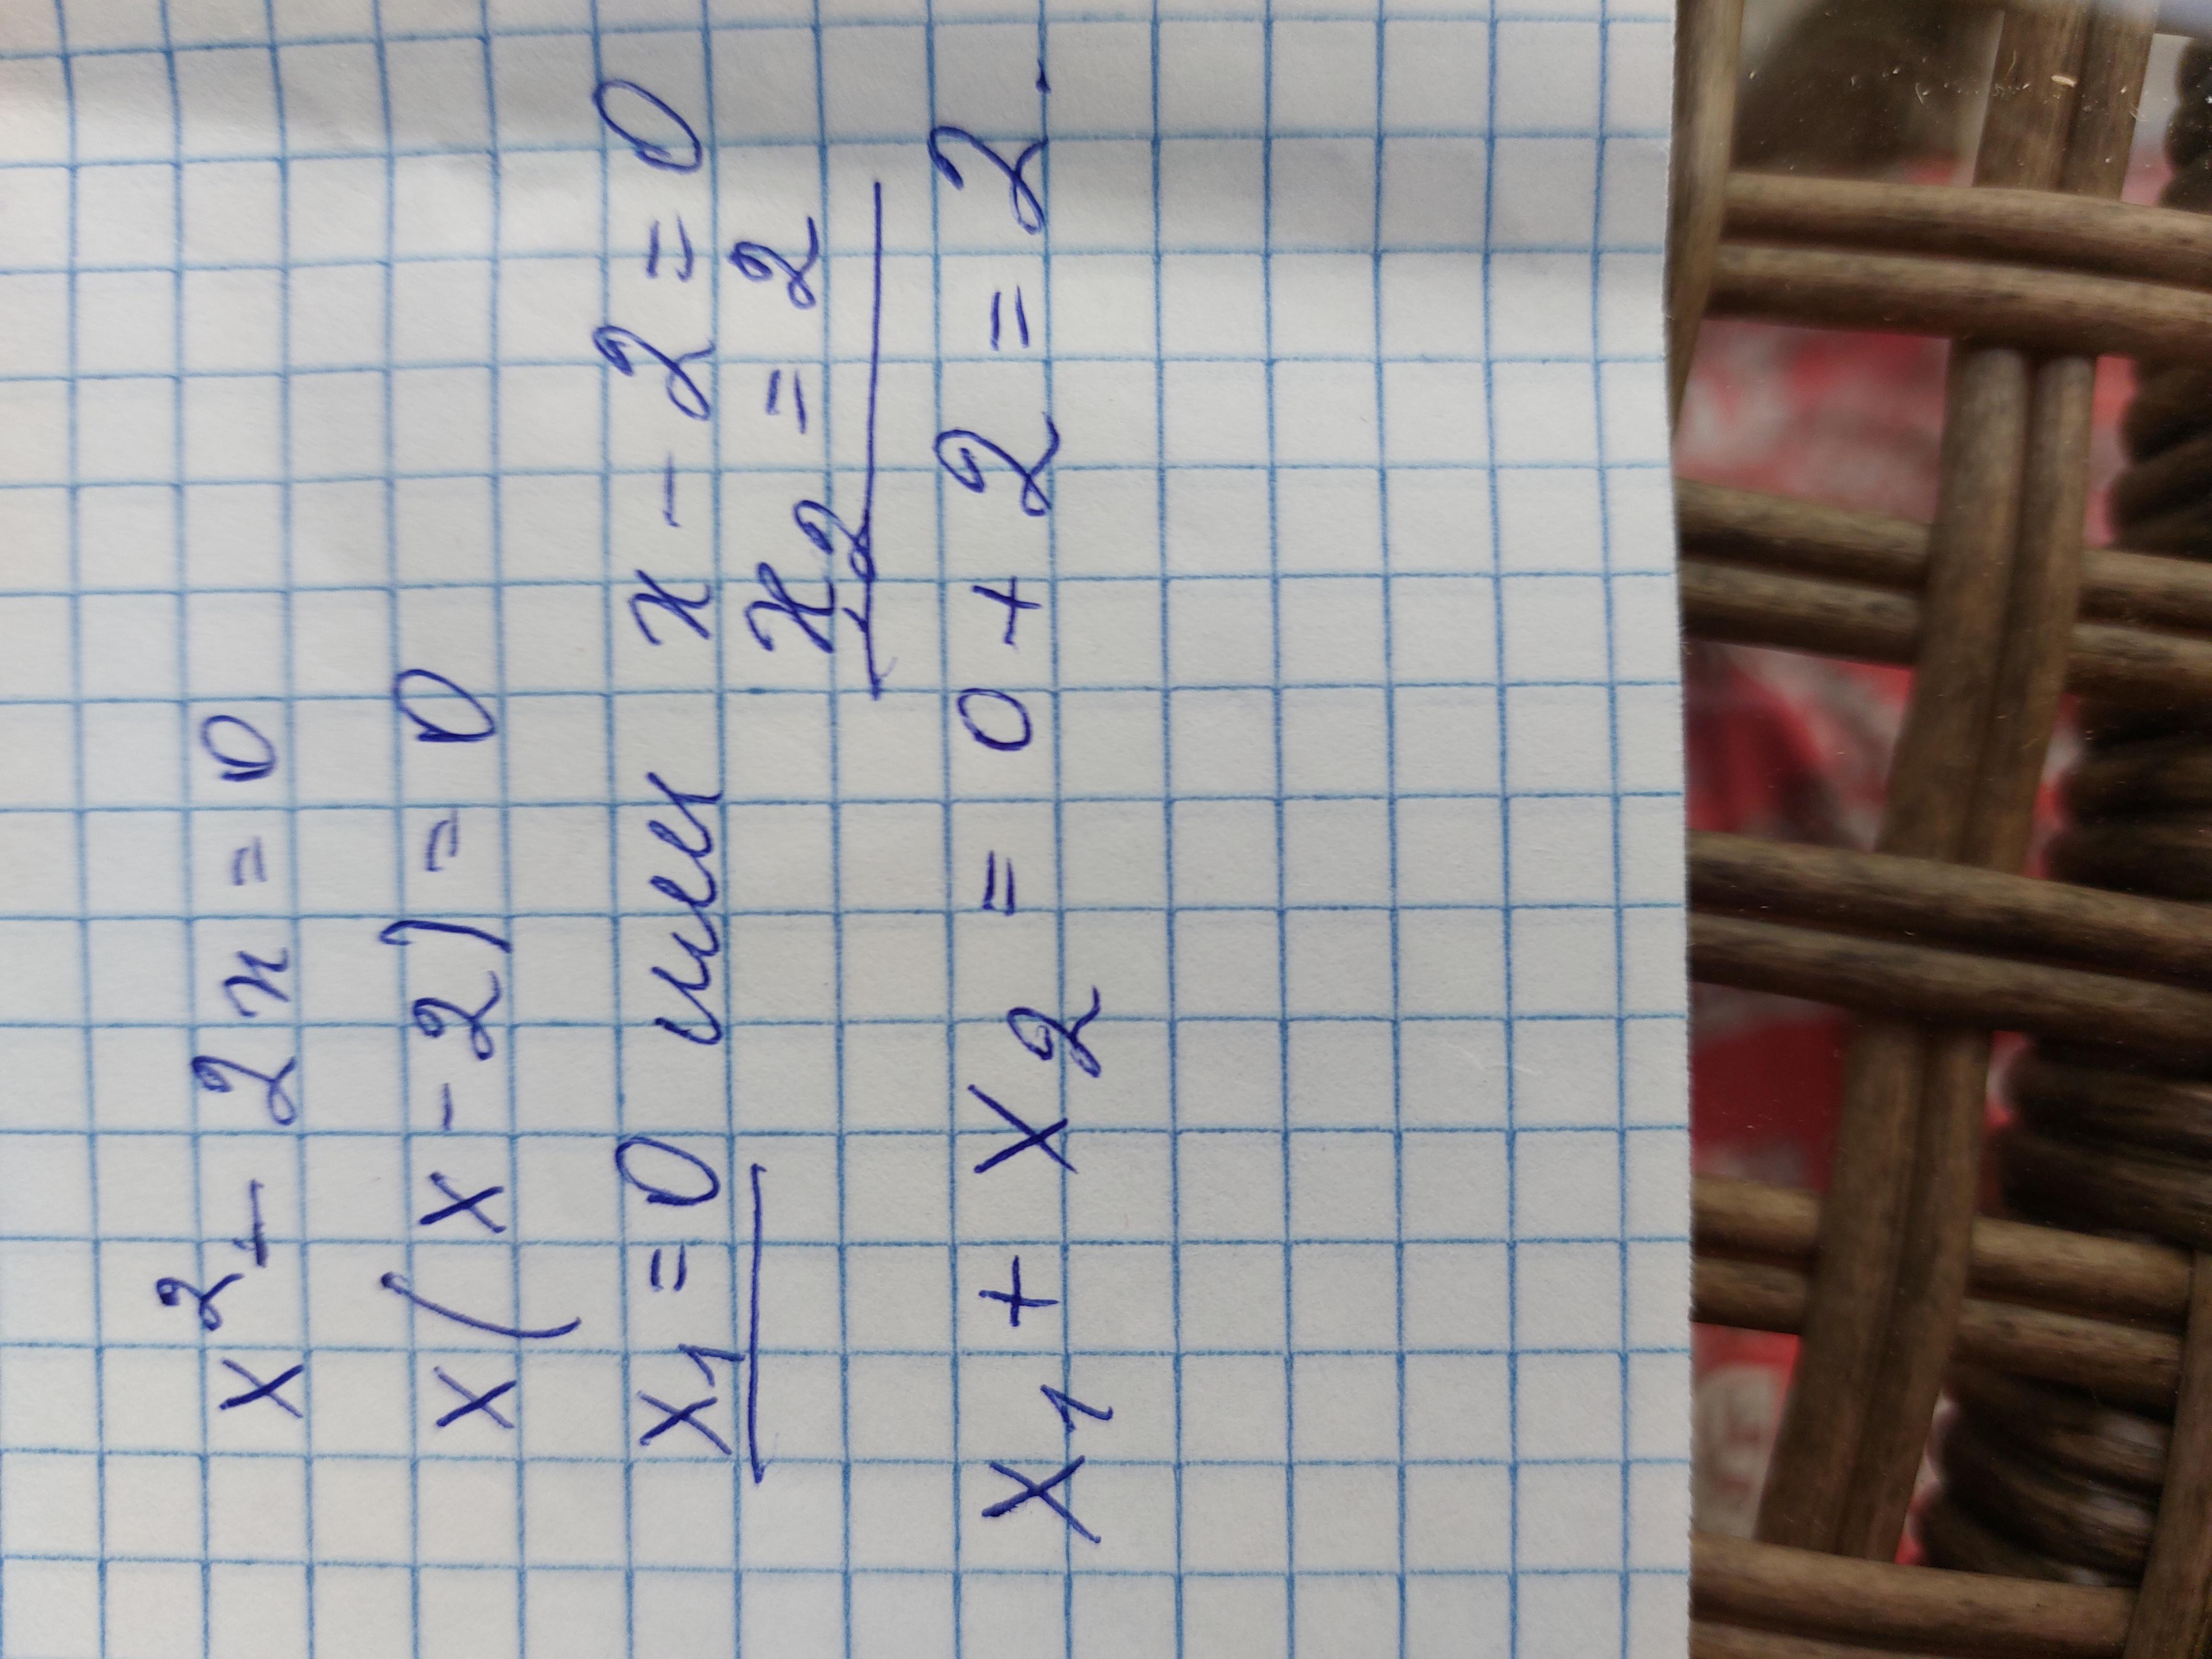 x² - 2x = 0
x(x - 2) = 0
x₁ = 0 или x - 2 = 0
x₂ = 2
x₁ + x₂ = 0 + 2 = 2.